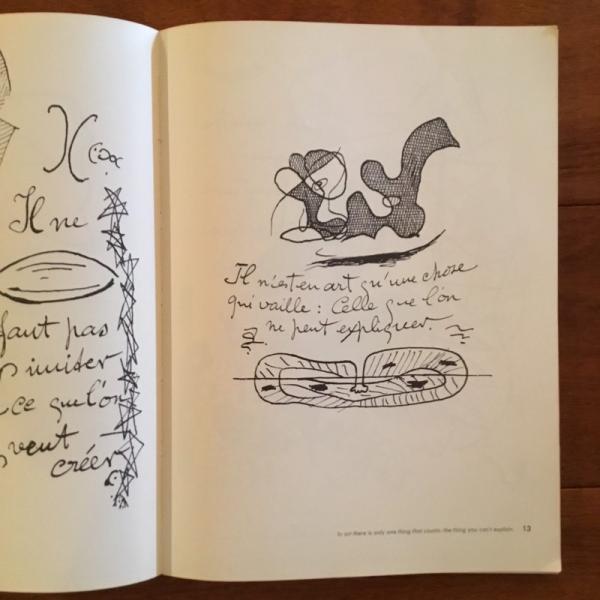 Il ne
faut pas
imiter
ce que l'on
veut
créer
Il n'est en art qu'une chose
qui vaille : Celle que l'on
ne peut expliquer.
In art there is only one thing that counts: the thing you can't explain. 13